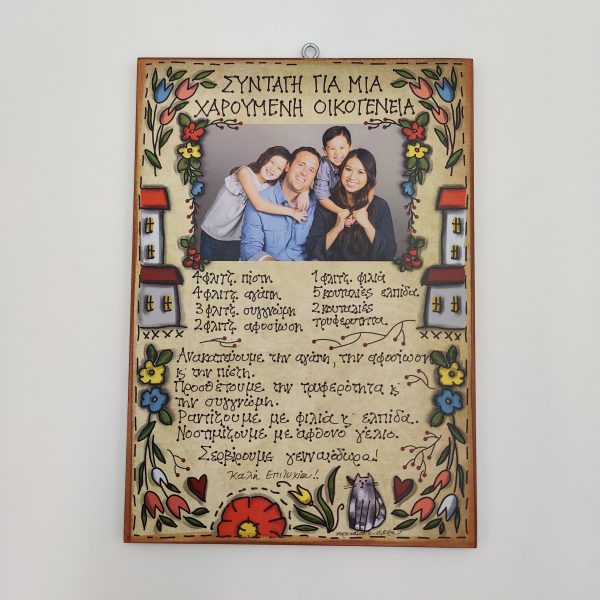 ΣΥΝΤΑΓΗ ΓΙΑ ΜΙΑ
ΧΑΡΟΥΜΕΝΗ ΟΙΚΟΓΕΝΕΙΑ
4 φλιτζ. πίστη
4 φλιτζ. αγάπη
3 φλιτζ. συγγνώμη
2 φλιτζ. αφοσίωση
1 φλιτζ. φιλιά
5 κουταλιές ελπίδα
2 κουταλιές
τρυφερότητα
Ανακατεύουμε την αγάπη, την αφοσίωση
κ' την πίστη.
Προσθέτουμε την τρυφερότητα κ'
την συγγνώμη.
Ραντίζουμε με φιλιά κ' ελπίδα.
Νοστιμίζουμε με άφθονο γέλιο.
Σερβίρουμε γενναιόδωρα!
Καλή Επιτυχία!!